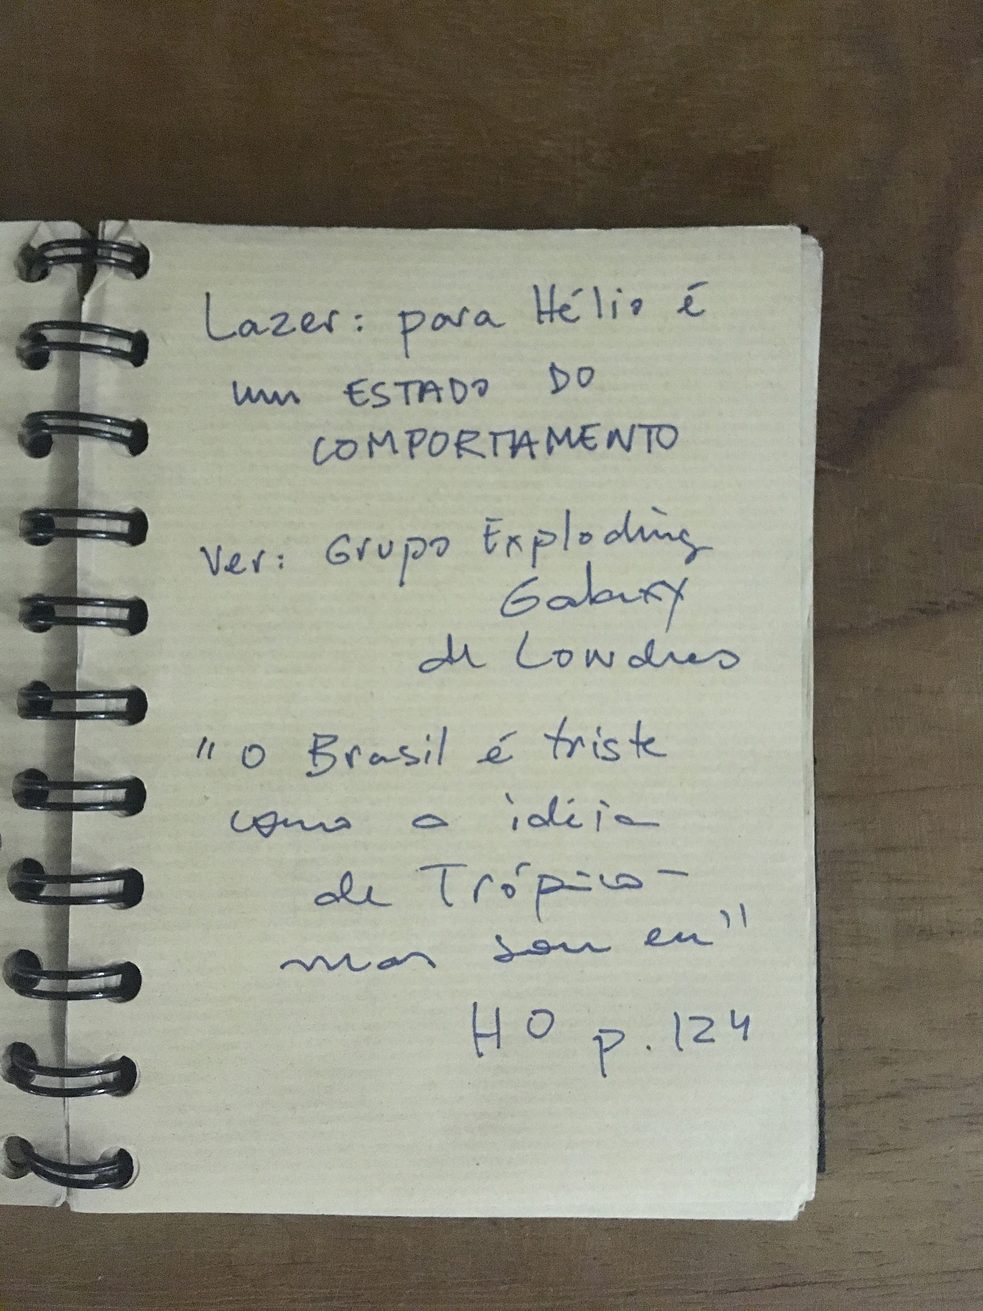 Lazer: para Hélio é
um ESTADO DO
COMPORTAMENTO
Ver: Grupo Exploding
Galaxy
de Londres
"O Brasil é triste
como a idéia
de Trópico -
mas sou eu"
HO p. 124